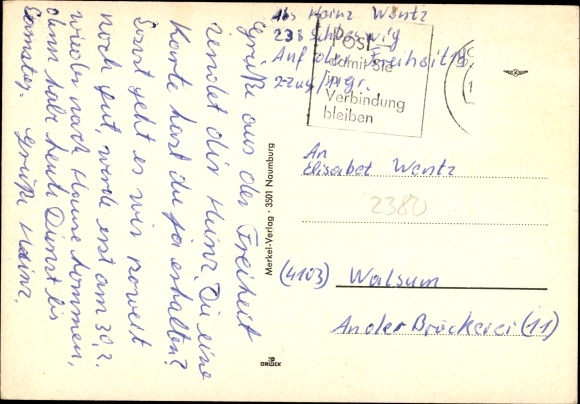 Grüße aus der Freiheit
sendet dir Heinz. Die eine
Karte hast du ja erhalten?
Sonst geht es mir soweit
noch gut, werde erst am 30.2.
wieder nach Hause kommen,
denn habe heute Dienst bis
Samstag. Grüße Heinz.
Abs Heinz Wentz
238 Schleswig
Auf der Freiheit 
Post
damit Sie
in
Verbindung
bleiben
An
Elisabet Wentz
2380
(4103) Walsum
An der Bröckerei (11)
Merkel-Verlag · 3501 Naumburg
DRUCK